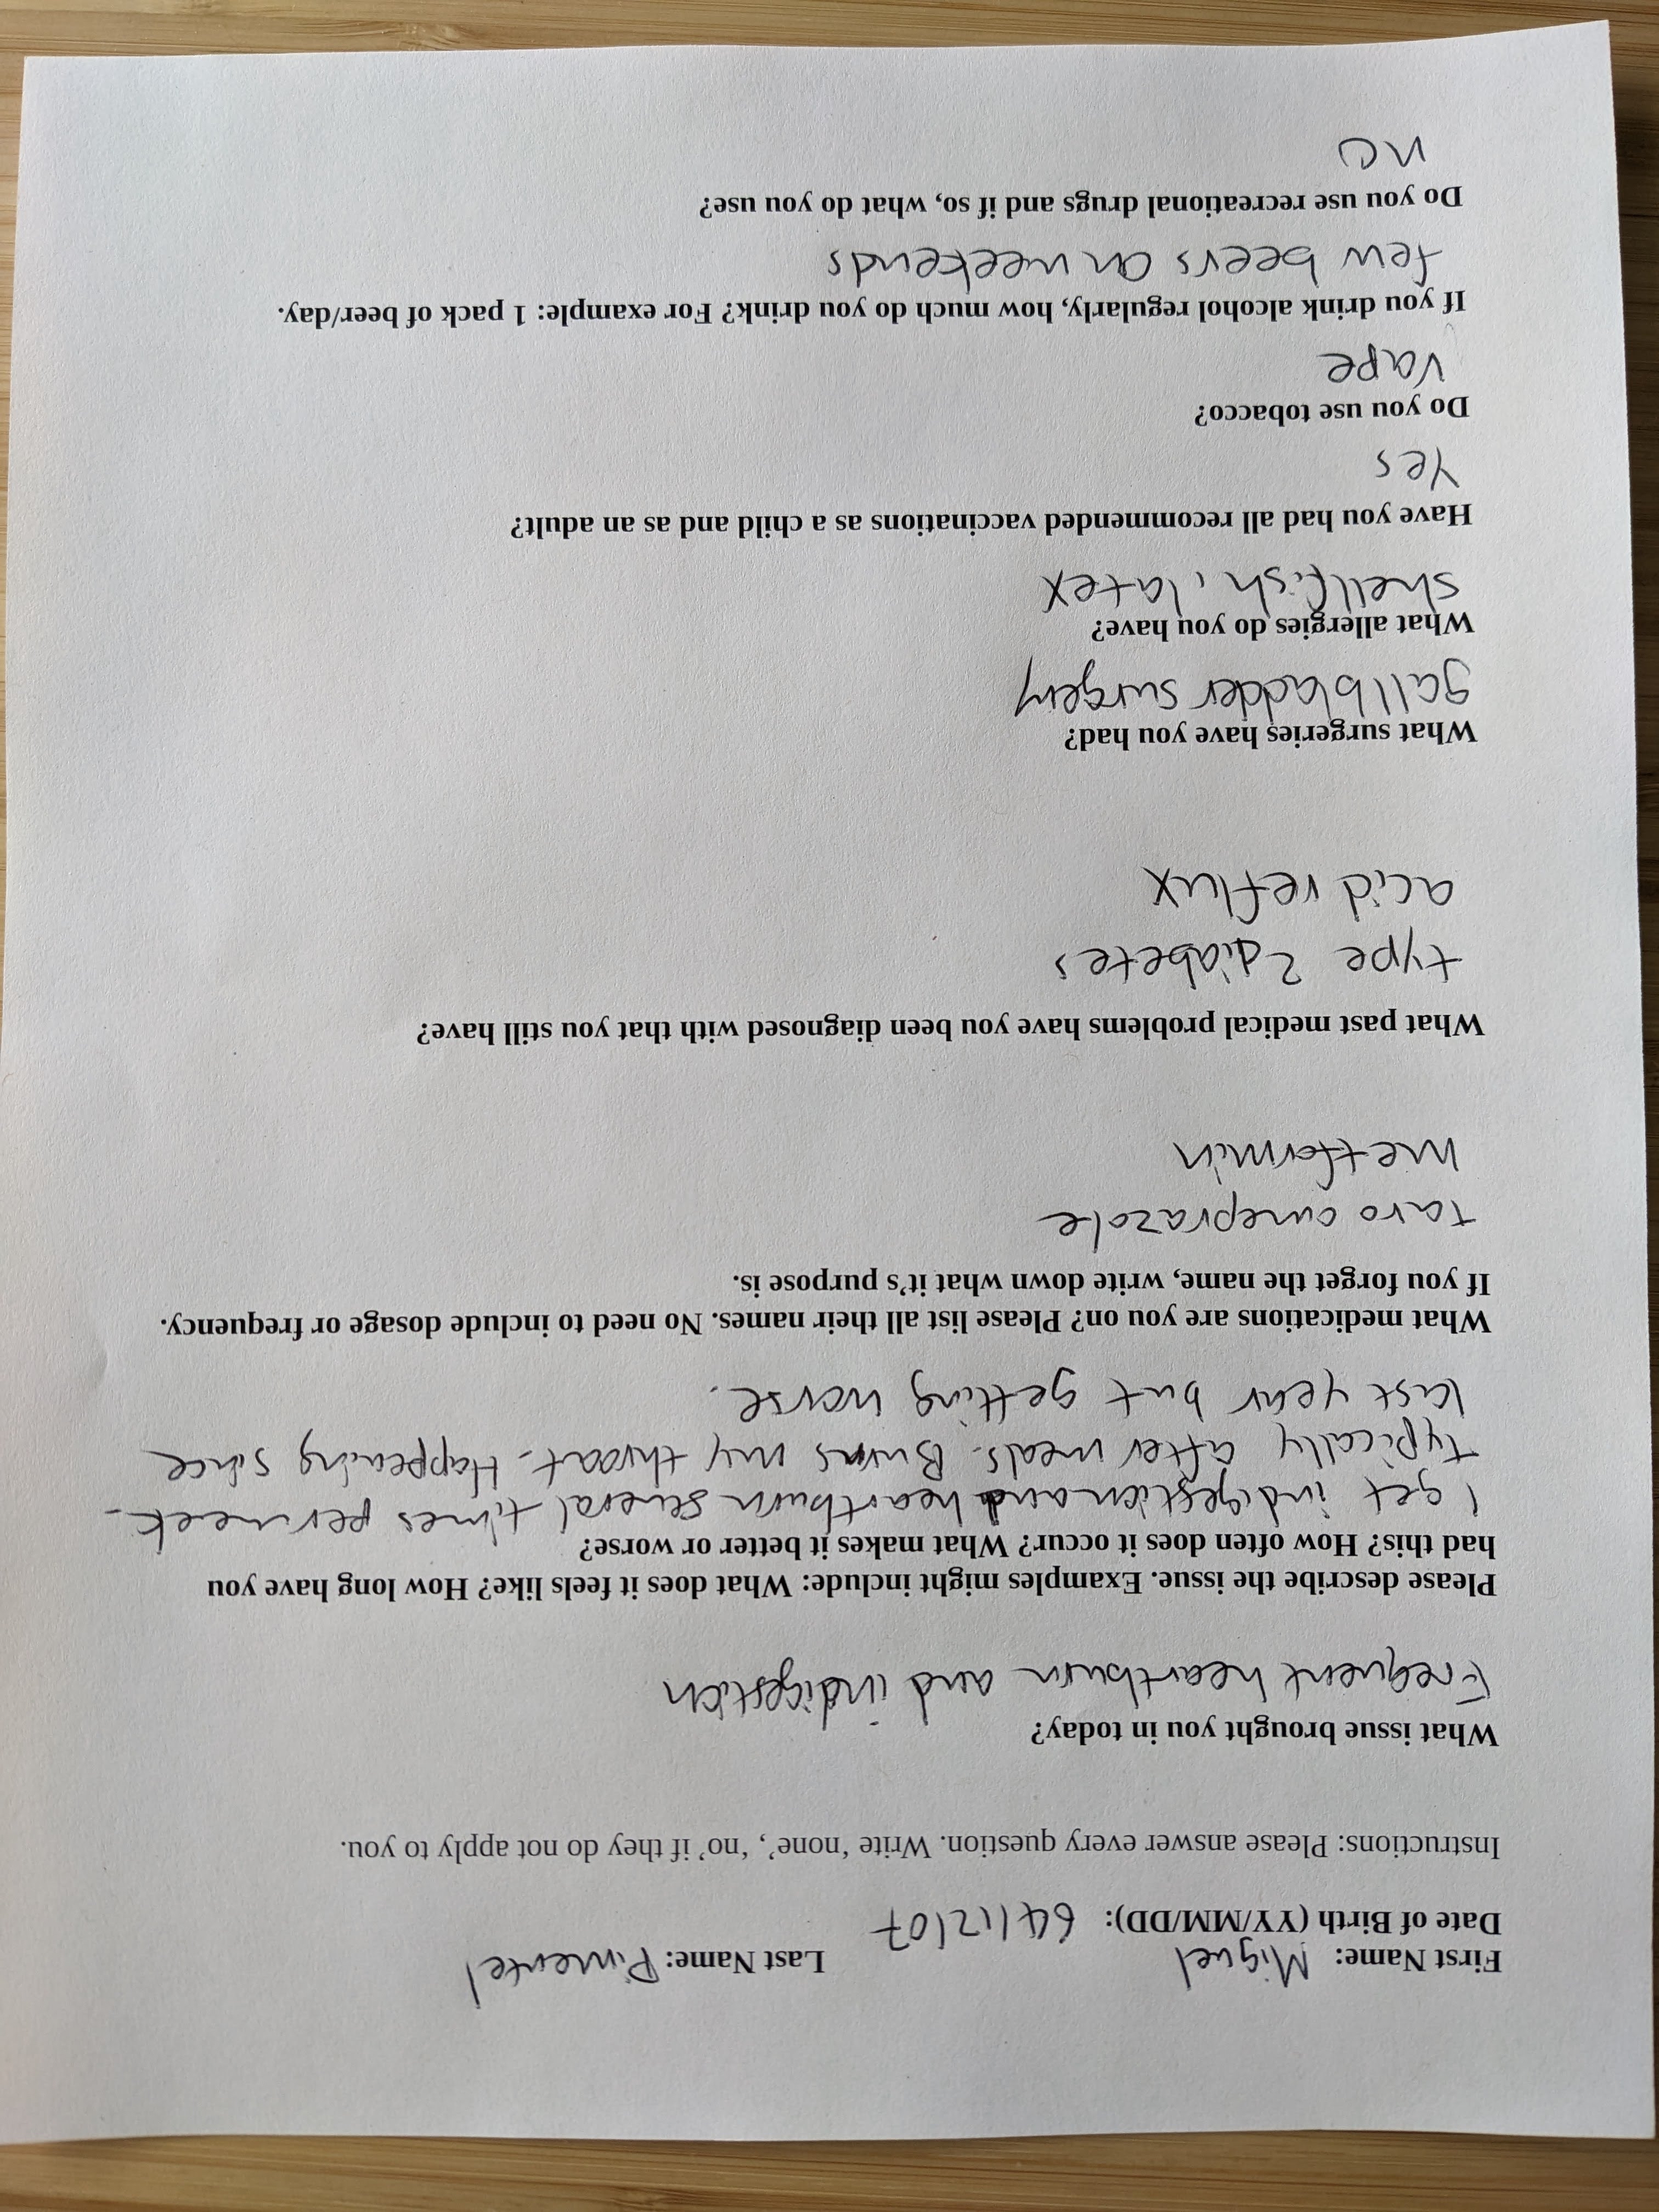 First Name: Miguel Last Name: Pimentel
Date of Birth (YY/MM/DD): 64/12/07
Instructions: Please answer every question. Write 'none', 'no' if they do not apply to you.
What issue brought you in today?
Frequent heartburn and indigestion
Please describe the issue. Examples might include: What does it feels like? How long have you
had this? How often does it occur? What makes it better or worse?
I get indigestion and heartburn several times per week.
typically after meals. Burns my throat. Happening since
last year but getting worse.
What medications are you on? Please list all their names. No need to include dosage or frequency.
If you forget the name, write down what it's purpose is.
taro omeprazole
metformin
What past medical problems have you been diagnosed with that you still have?
type 2 diabetes
acid reflux
What surgeries have you had?
gallbladder surgery
What allergies do you have?
shellfish, latex
Have you had all recommended vaccinations as a child and as an adult?
Yes
Do you use tobacco?
Vape
If you drink alcohol regularly, how much do you drink? For example: 1 pack of beer/day.
few beers on weekends
Do you use recreational drugs and if so, what do you use?
no